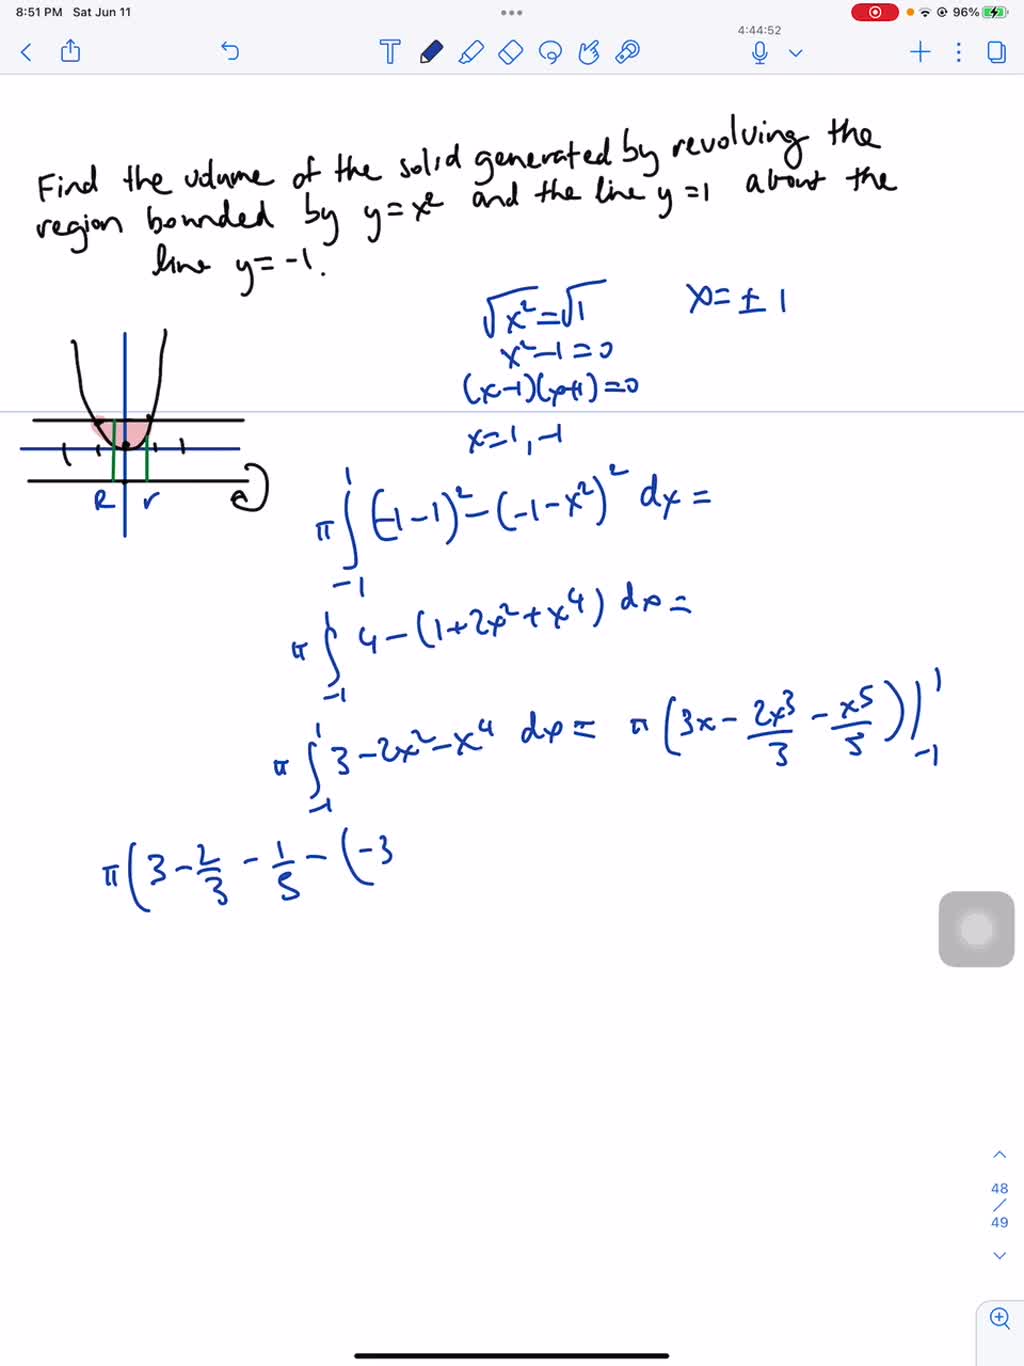 8:51 PM Sat Jun 11
96%
4:44:52
Find the volume of the solid generated by revolving the
region bounded by y = x² and the line y = 1 about the
line y = -1.
√x² = √1
x = ± 1
x² - 1 = 0
(x-1)(x+1) = 0
x = 1, -1
R r
π ∫₋₁¹ (-1-1)² - (-1-x²)² dx =
π ∫₋₁¹ 4 - (1+2x²+x⁴) dx =
π ∫₋₁¹ 3 - 2x² - x⁴ dx = π (3x - 2x³/3 - x⁵/5) |₋₁¹
π (3 - 2/3 - 1/5 - (-3
48
/
49